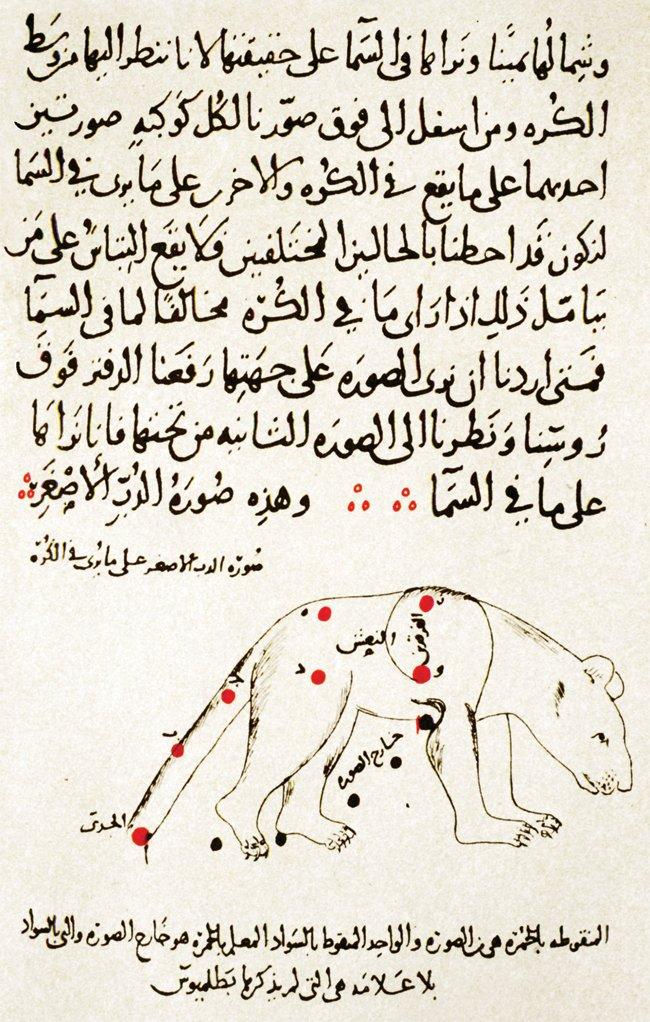 وشمالها يمينا ونراها في السما على حقيقتها لاننا ننظر اليها من وسط
الكره ومن اسفل الى فوق صورنا لكل كوكبه صورتين
احديهما على ما يقع في الكره والاخرى على ما يرى في السما
لنكون قد احطنا بالحالين المختلفين فلا يقع التباس على من
يتامل ذلك اذا راى ما في الكره مخالفا لما في السما
فمتى اردنا ان نرى الصوره على جهتها رفعنا الدفتر فوق
روسنا ونظرنا الى الصوره الثانيه من تحتها فانا نراها
على ما في السما وهذه صورة الدب الاصغر
صوره الدب الاصغر على ما يرى في الكرة
الفرقدين
النعش
خارج الصوره
الجدى
المنقوطه بالحمره هى من الصوره والواحد المنقوط بالسواد المعلم بالحمرة هو خارج الصوره والتى بالسواد
بلا علامه هى التى لم يذكرها بطلميوس